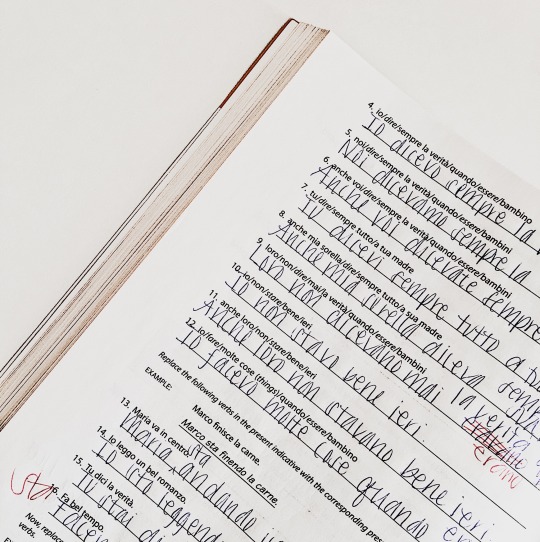 4. io/dire/sempre la verità/quando/essere/bambino
Io dicevo sempre la
5. noi/dire/sempre la verità/quando/essere/bambini
Noi dicevamo sempre la
6. anche voi/dire/sempre la verità/quando/essere/bambini
Anche voi dicevate sempre
7. tu/dire/sempre tutto/a tua madre
Tu dicevi sempre tutto a
8. anche mia sorella/dire/sempre tutto/a sua madre
Anche mia sorella diceva
9. loro/non/dire/mai/la verità/quando/essere/bambini
Loro non dicevano mai la verità
10. io/non/stare/bene/ieri
Io non stavo bene ieri
erano
11. anche loro/non/stare/bene/ieri
Anche loro non stavano bene ieri
12. io/fare/molte cose (things)/quando/essere/bambino
Io facevo molte cose quando
Replace the following verbs in the present indicative with the corresponding
EXAMPLE: Marco finisce la carne.
Marco sta finendo la carne.
13. Maria va in centro.
Maria sta andando
14. Io leggo un bel romanzo.
Io sto leggendo
15. Tu dici la verità.
Tu stai
16. Fa bel tempo.
sta
Now, replace
verbs.